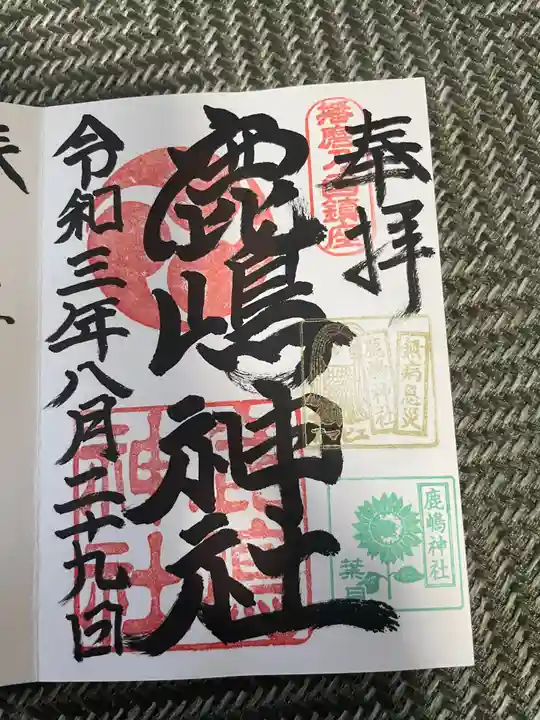 奉拝
播磨乃国鎮座
鹿嶋神社
令和三年八月二十九日
無病息災
鹿嶋神社
鹿嶋神社
葉月